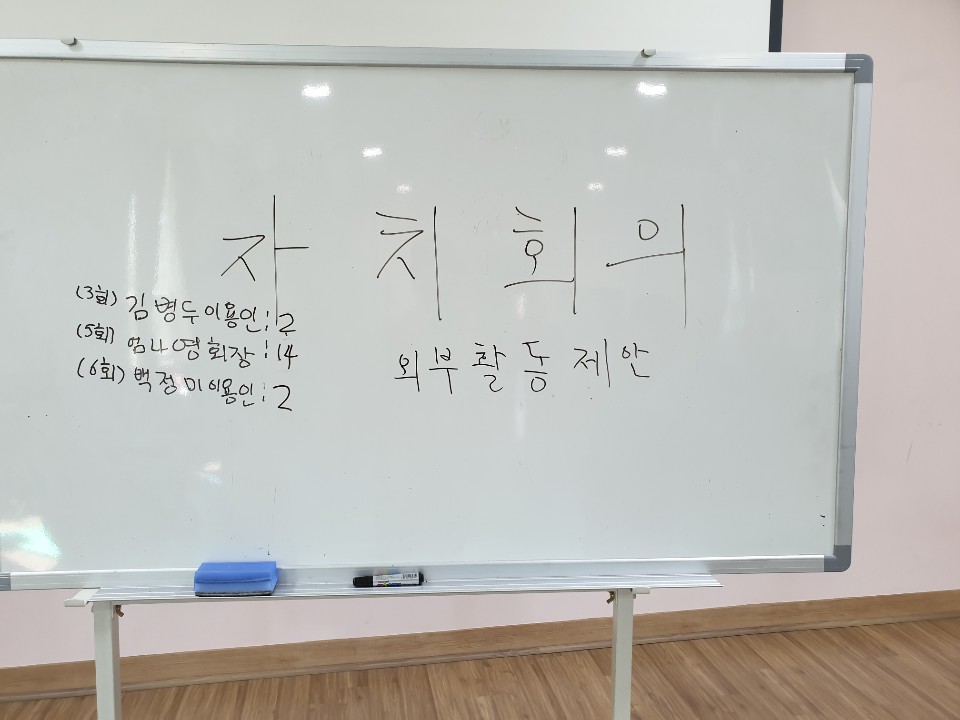 자치회의
(3회) 김병두이용인:2
(5회) 엄나영회장:14
(6회) 백정미이용인:2
외부활동제안